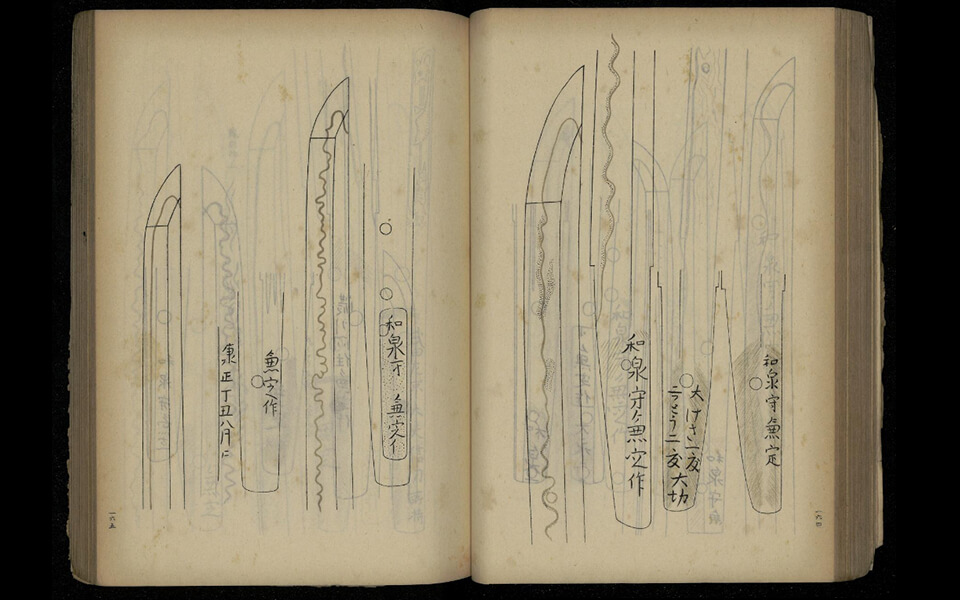 和泉守兼定
大けさ一度
二つとう二度大切
和泉守兼定作
一六四
和泉守 兼定作
兼定作
康正丁丑八月二
一六五